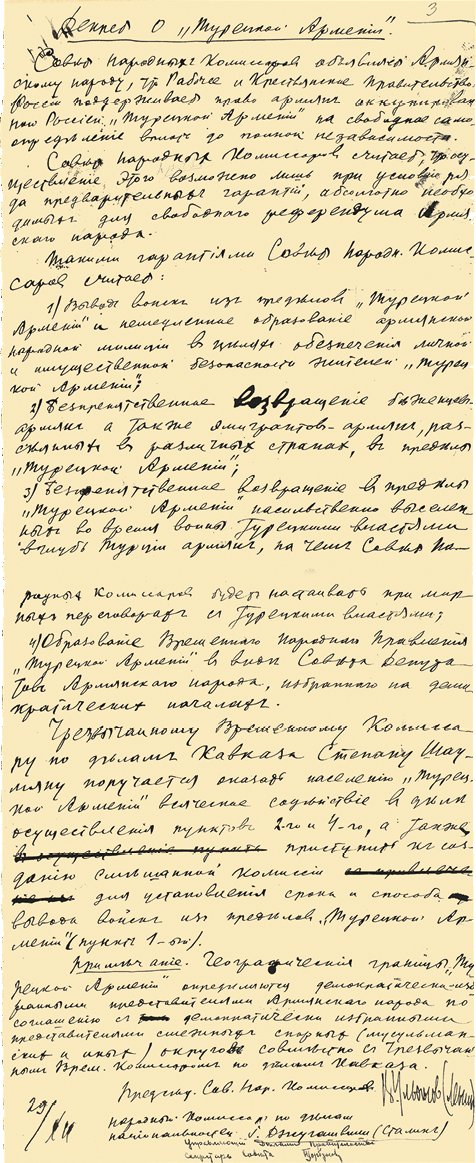 3
Декрет О „Турецкой Арменіи".
Совѣт Народных Комиссаров объявляет Армян-
скому народу, что Рабочее и Крестьянское Правительство
Россіи поддерживает право армян оккупирован-
ной Россіей „Турецкой Арменіи" на свободное само-
опредѣленіе вплоть до полной независимости.
Совѣт Народных Комиссаров считает, что осу-
ществленіе этого возможно лишь при условіи ря-
да предварительных гарантій, абсолютно необхо-
димых для свободнаго референдума армян-
скаго народа.
Такими гарантіями Совѣт Народн. Комис-
саров считает:
1) Вывод войск из предѣлов „Турецкой
Арменіи" и немедленное образованіе армянской
народной милиціи в цѣлях обезпеченія личной
и имущественной безопасности жителей „Турец-
кой Арменіи";
2) Безпрепятственное возвращеніе бѣженцев-
армян а также эмигрантов-армян, раз-
сѣянных в различных странах, в предѣлы
„Турецкой Арменіи";
3) Безпрепятственное возвращеніе в предѣлы
„Турецкой Арменіи" насильственно выселен-
ных во время войны Турецкими властями
вглубь Турціи армян, на чем Совѣт На-
родных Комиссаров будет настаивать при мир-
ных переговорах с Турецкими властями;
4) Образованіе Временнаго Народнаго Правленія
„Турецкой Арменіи" в видѣ Совѣта Депута-
тов Армянскаго народа, избраннаго на демо-
кратических началах.
Чрезвычайному Временному Комисса-
ру по дѣлам Кавказа Степану Шау-
мяну поручается оказать населенію „Турец-
кой Арменіи" всяческое содѣйствіе в дѣлѣ
осуществленія пунктов 2-го и 4-го, а также
в осуществленіе пункта приступить к соз-
данію смѣшанной комиссіи
для установленія срока и способа
вывода войск из предѣлов „Турецкой Ар-
меніи" (пункт 1-ый).
Примѣчаніе. Географическія границы „Ту-
рецкой Арменіи" опредѣляются демократически-из-
бранными представителями Армянскаго народа по
соглашенію с демократически избранными
представителями смежных спорных (мусульман-
ских и иных) округов совмѣстно с Чрезвычай-
ным Врем. Комиссаром по дѣлам Кавказа.
Предсѣд. Сов. Нар. Комиссаров В. Ульянов (Ленин)
29/XII
Народный Комиссар по дѣлам
національностей І. Джугашвили (Сталин)
Управляющій Дѣлами Правительства
Секретарь Совѣта